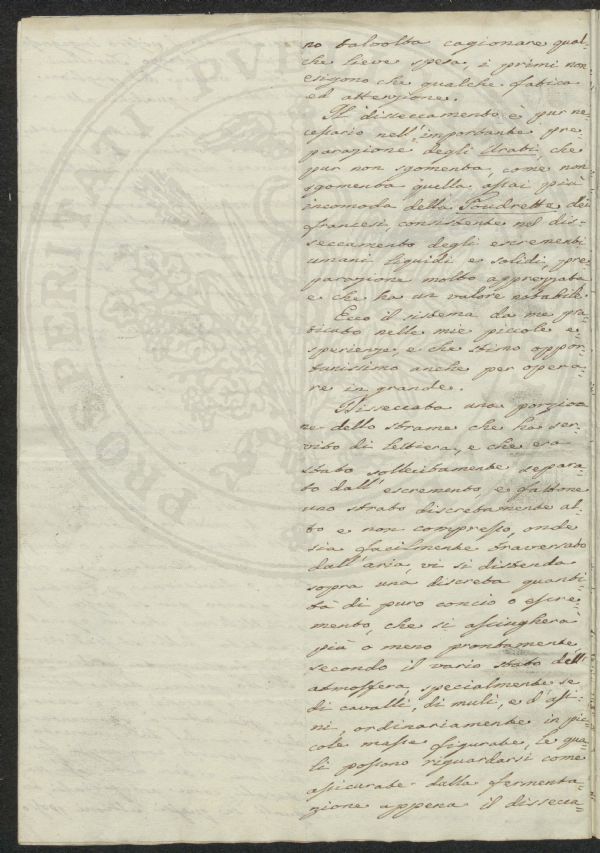 no talvolta cagionare qual=
che lieve spesa, i primi non
esigono che qualche fatica
ed attenzione.
Il disseccamento è pur ne=
cessario nell'importante pre=
parazione degli Urati, che
pur non sgomenta, come non
sgomenta quella assai più
incomoda della Poudrette dei
francesi, consistente nel dis=
seccamento degli escrementi
umani liquidi e solidi, pre=
parazione molto apprezzata
e che ha un valore notabile.
Ecco il sistema da me pra=
ticato nelle mie piccole e=
sperienze, e che stimo oppor=
tunissimo anche per opera=
re in grande.
Disseccata una porzio=
ne dello strame che ha ser=
vito di lettiera, e che era
stato sollecitamente separa=
to dall'escremento e fattone
uno strato discretamente al=
to e non compresso, onde
sia facilmente traversato
dall'aria, vi si distenda
sopra una discreta quanti=
tà di puro concio o escre=
mento, che si asciugherà
più o meno prontamente
secondo il vario stato dell'
atmosfera, specialmente se
di cavalli, di muli, e d'asi=
ni, ordinariamente in pic=
cole masse figurate, le qua=
li possono riguardarsi come
assicurate dalla fermenta=
zione appena il dissecca=
PRO PERITATI PVBLI